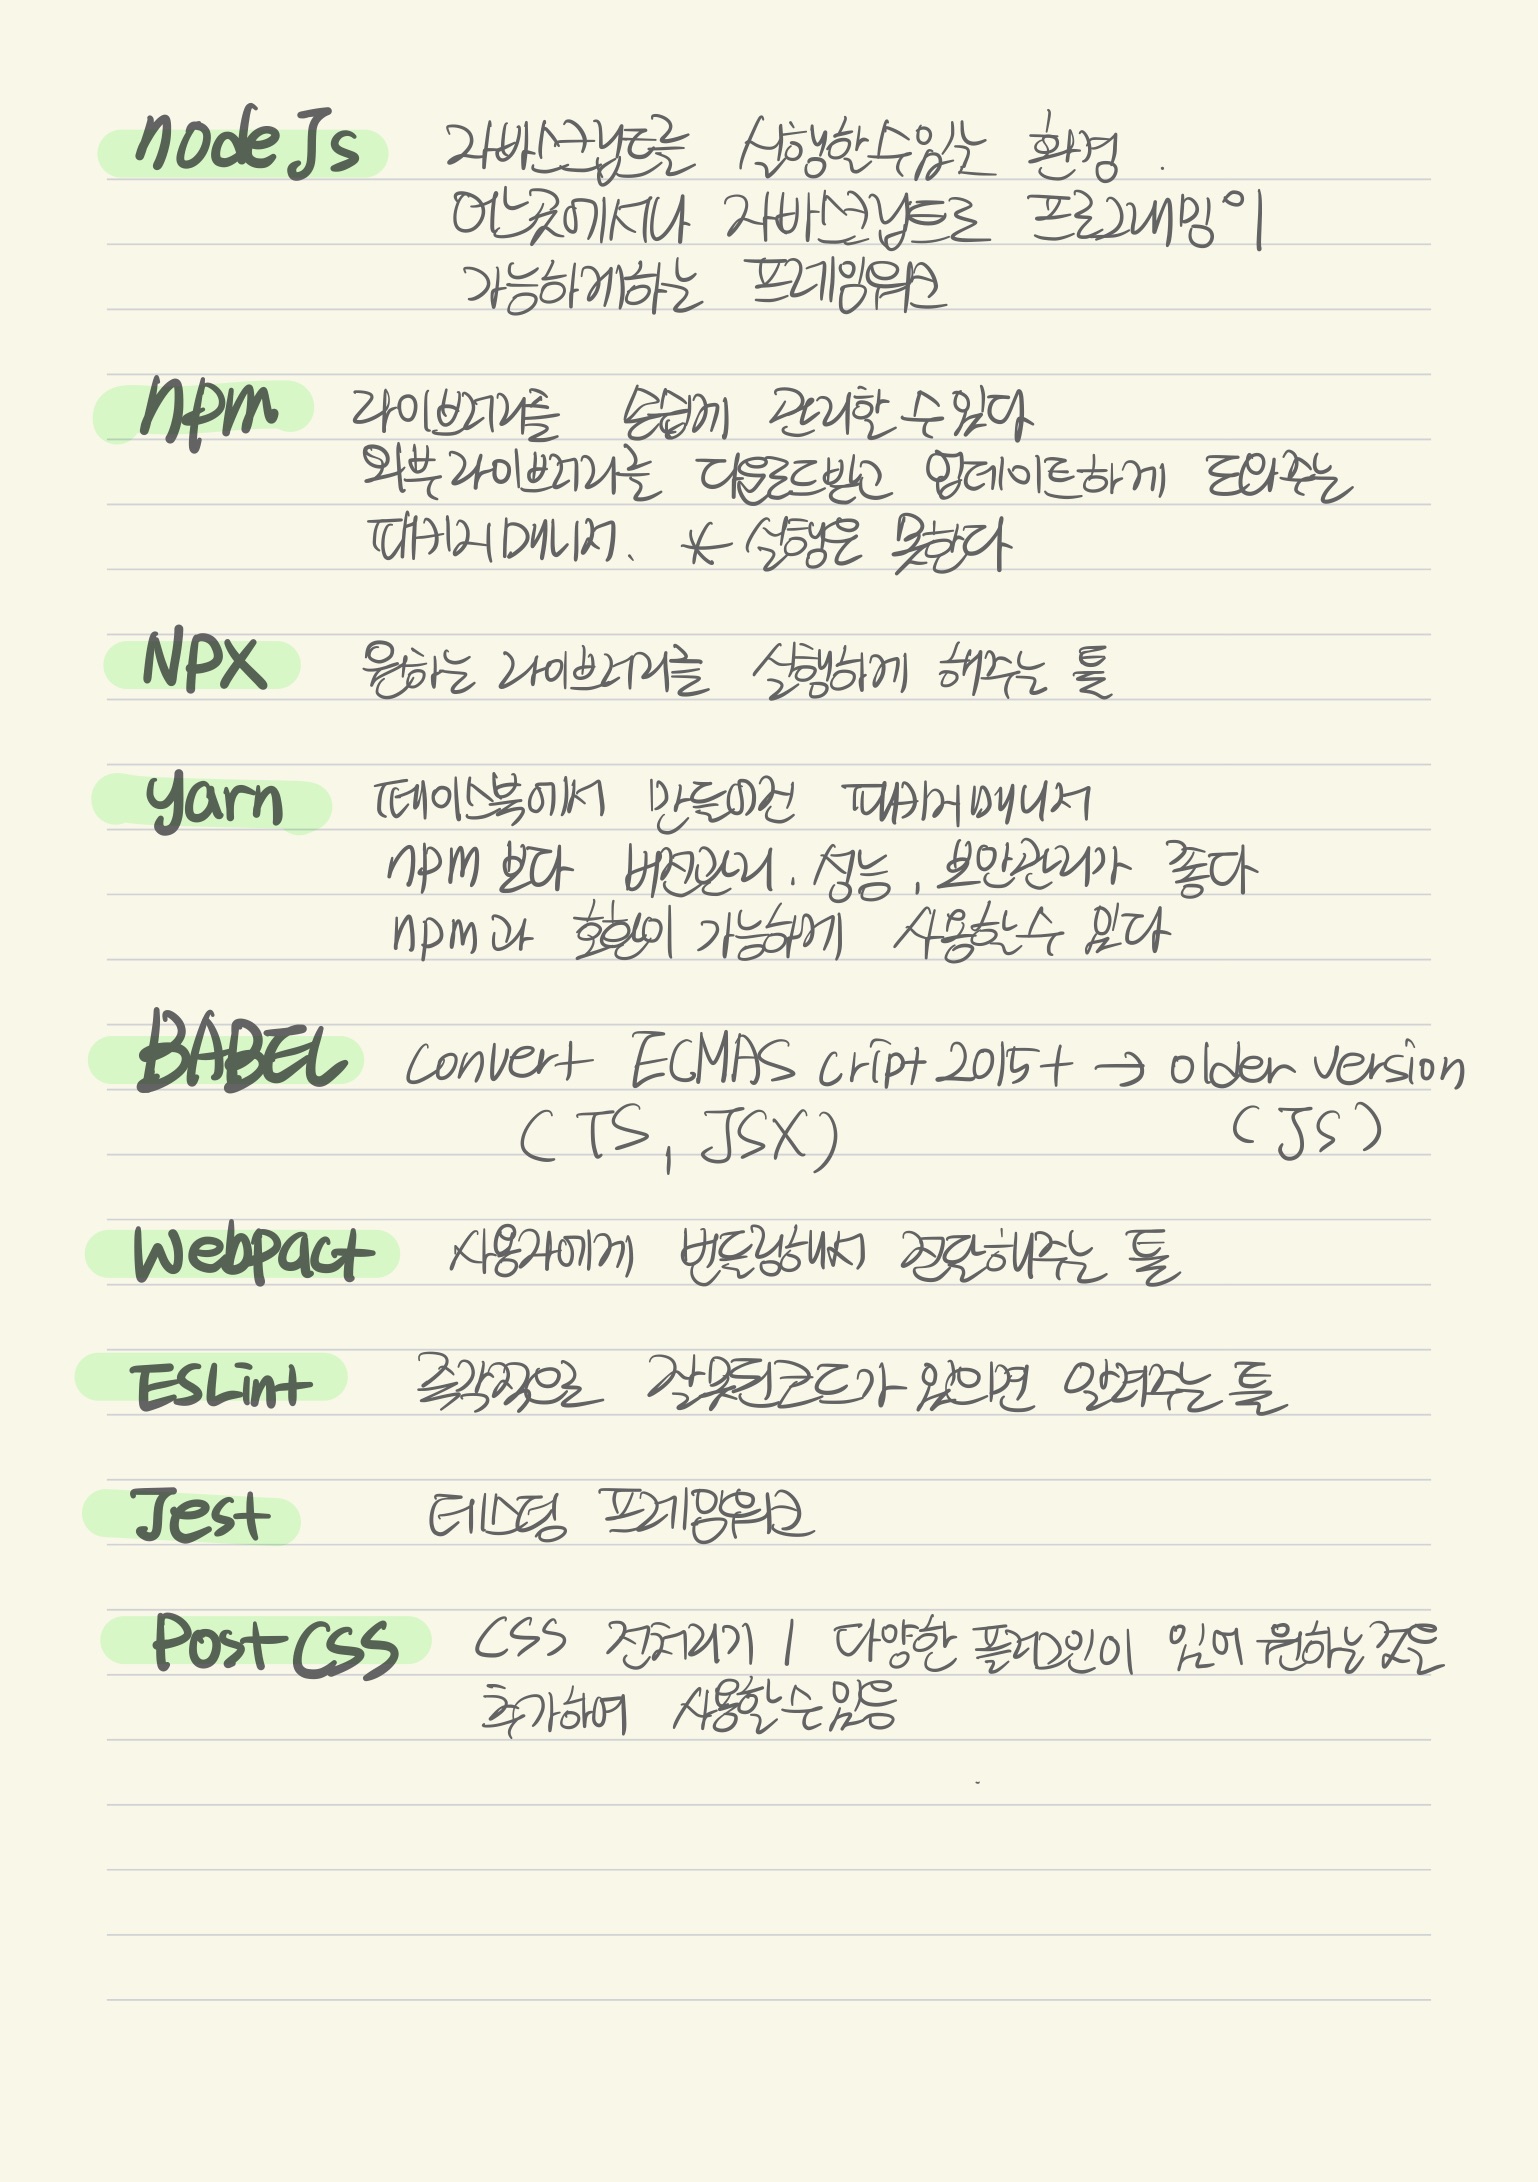 nodeJs 자바스크립트를 실행할수있는 환경.
어느곳에서나 자바스크립트로 프로그래밍이
가능하게하는 프레임워크
npm 라이브러리를 손쉽게 관리할 수 있다
외부 라이브러리를 다운로드받고 업데이트하게 도와주는
패키지 매니저. * 실행은 못한다
NPX 원하는 라이브러리를 실행하게 해주는 툴
yarn 페이스북에서 만들어진 패키지 매니저
npm 보다 버전관리, 성능, 보안관리가 좋다
npm과 호환이 가능하게 사용할수 있다
BABEL convert ECMAScript 2015+ → older version
(TS, JSX) (JS)
Webpact 사용자에게 번들링해서 전달해주는 툴
ESLint 즉각적으로 잘못된코드가 있으면 알려주는 툴
Jest 테스팅 프레임워크
PostCSS CSS 전처리기 / 다양한 플러그인이 있어 원하는것을
추가하여 사용할수있음